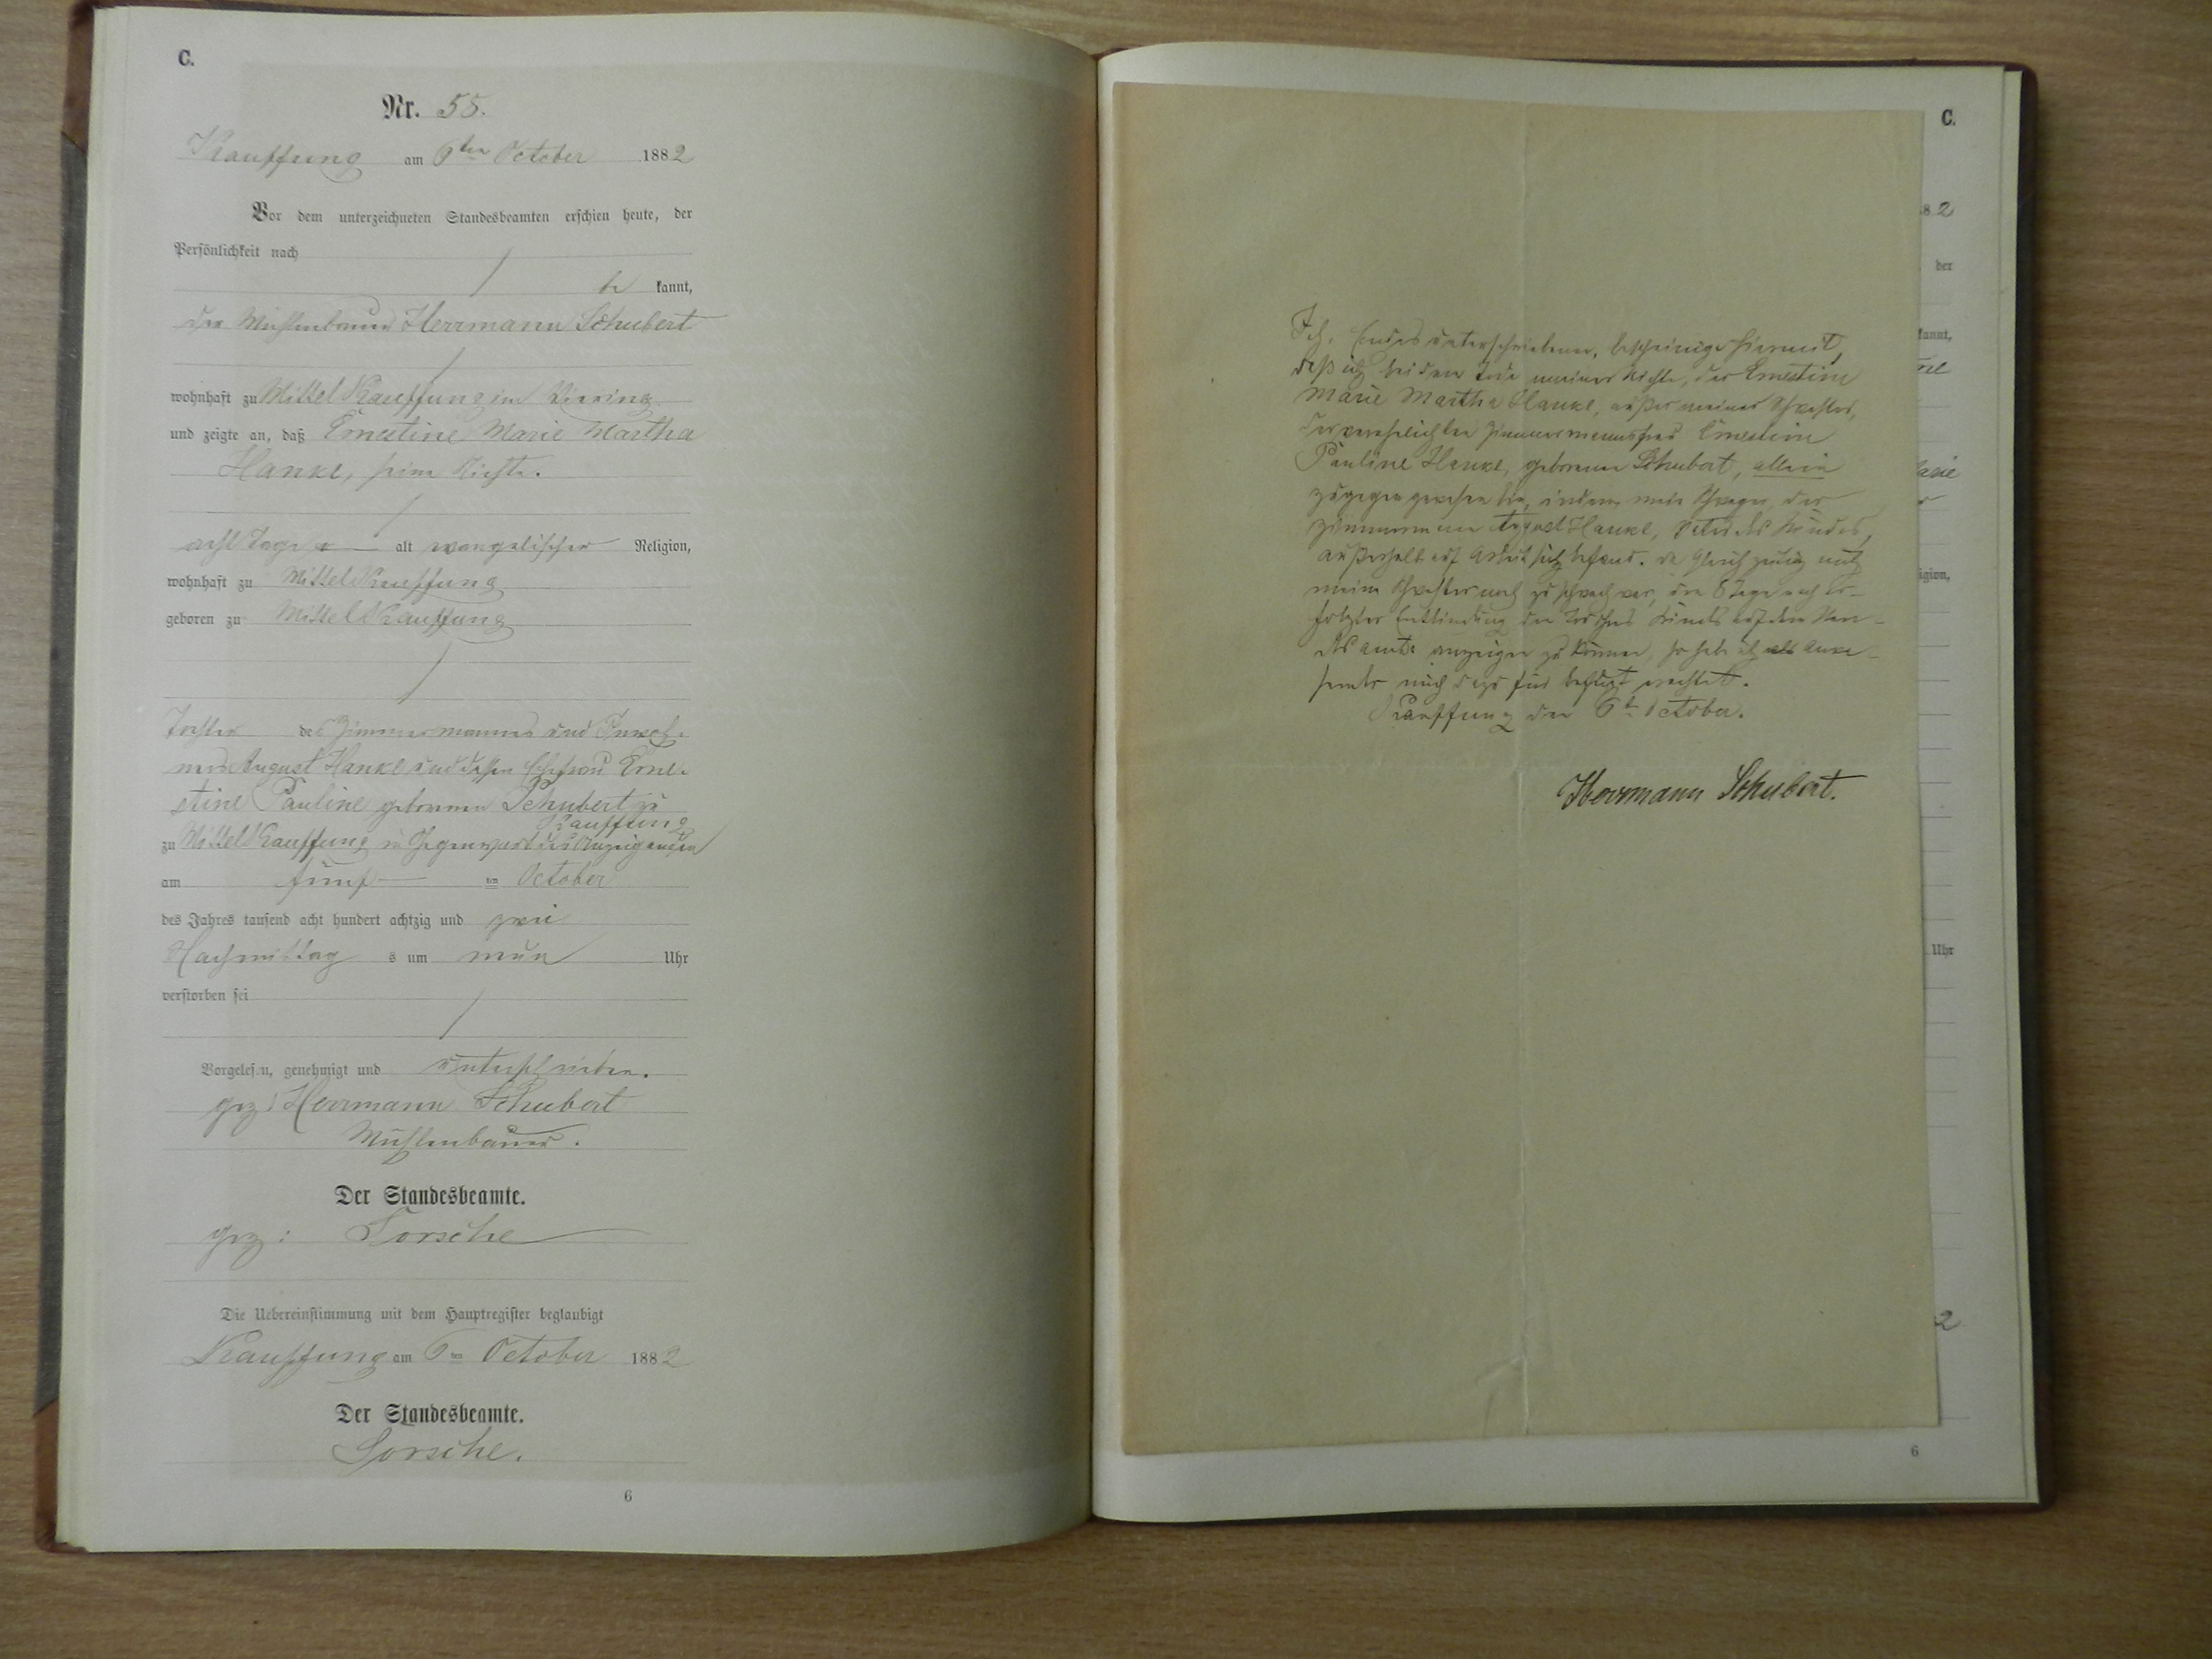 C.
Nr. 55.
Kauffung am 6ten October 1882
Vor dem unterzeichneten Standesbeamten erschien heute, der
Persönlichkeit nach
be kannt,
der Mühlenbauer Herrmann Schubert
wohnhaft zu Mittel Kauffung im
und zeigte an, daß Ernestine Marie Martha
Hanke, seine Nichte.
acht Tage alt evangelischer Religion,
wohnhaft zu Mittel Kauffung
geboren zu Mittel Kauffung
Tochter des Zimmermannes und
August Hanke und dessen Ehefrau Erne-
stine Pauline geborenen Schubert zu
Kauffung
zu Mittel Kauffung in Gegenwart des Anzeigenden
am fünf ten October
des Jahres tausend acht hundert achtzig und zwei
Nachmittag s um neun Uhr
verstorben sei
Vorgelesen, genehmigt und unterschrieben.
gez: Herrmann Schubert
Mühlenbauer.
Der Standesbeamte.
gez:
Die Uebereinstimmung mit dem Hauptregister beglaubigt
Kauffung am 6 ten October 1882
Der Standesbeamte.
6
Ich, Endesunterschriebener, bescheinige hiermit,
daß ich bei dem Tode meiner Nichte, der Ernestine
Marie Martha Hanke, außer meiner Schwester,
der verehelichten Zimmermannsfrau Ernestine
Pauline Hanke, geborene Schubert, allein
zugegen gewesen bin, indem mein Schwager, der
Zimmermann August Hanke, Vater des Kindes,
außerhalb auf Arbeit sich befand. Da gleichzeitig auch
meine Schwester noch zu schwach war, um 8 Tage nach er-
folgter Entbindung den Tod ihres Kindes auf dem Stan-
desamte anzeigen zu können, so habe ich als Anwe-
sender mich dazu für befugt erachtet.
Kauffung den 6t October.
Herrmann Schubert.
C.
8 2
der
kannt,
igion,
Uhr
2
6